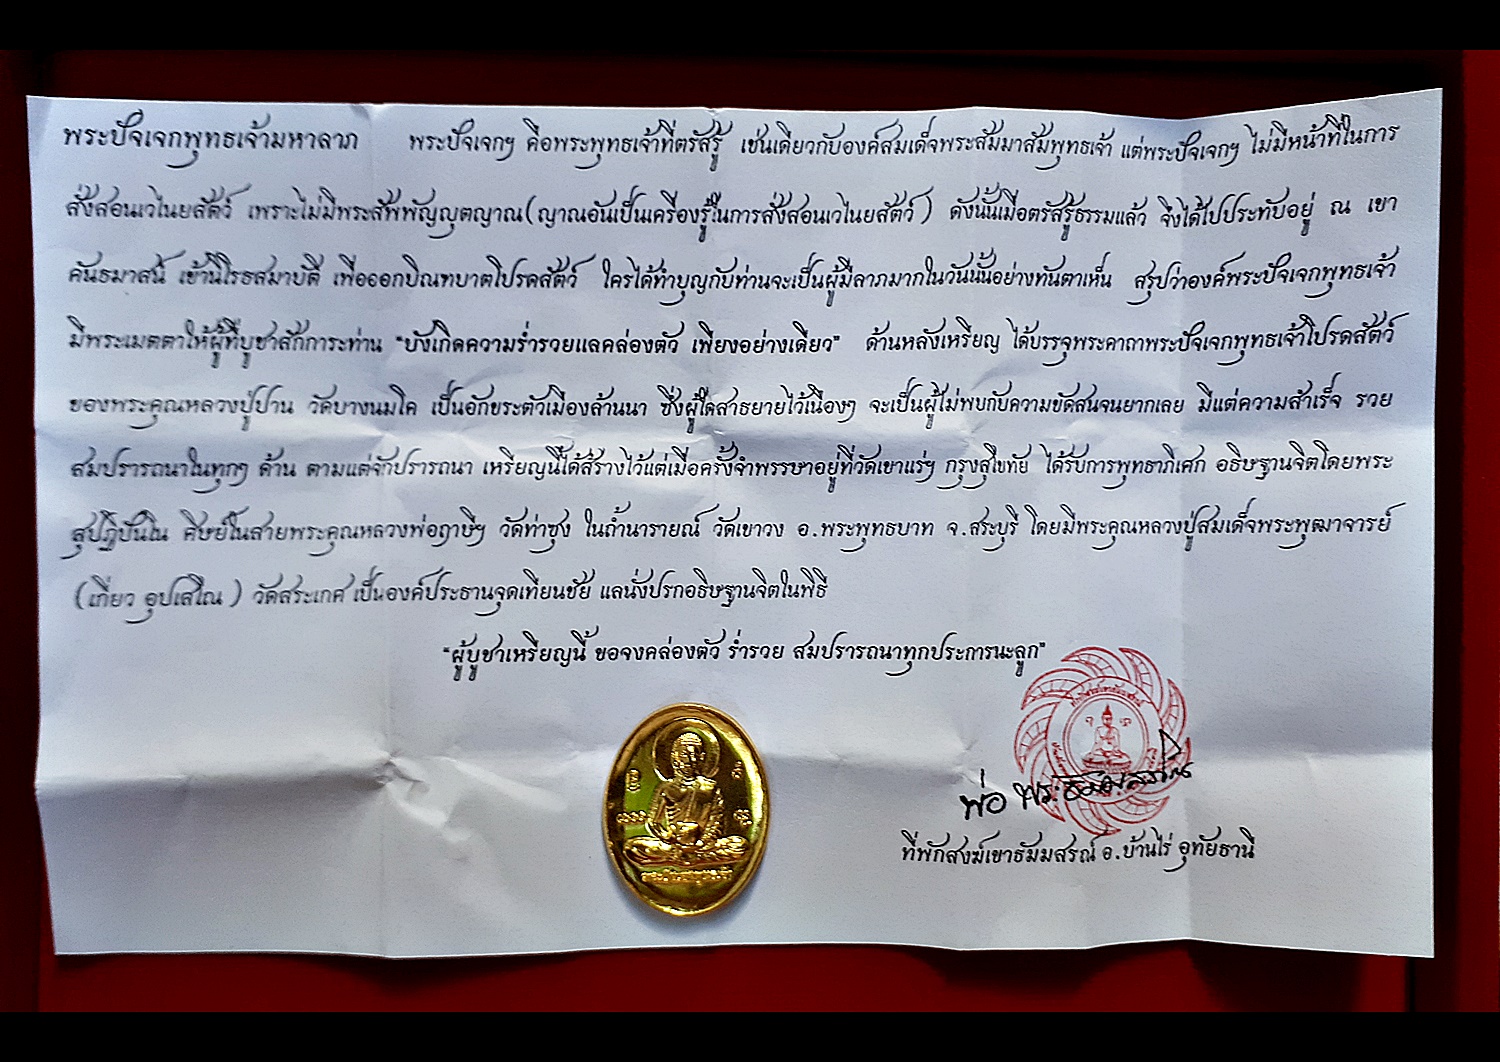 พระปัจเจกพุทธเจ้ามหาลาภ พระปัจเจกฯ คือพระพุทธเจ้าที่ตรัสรู้ เช่นเดียวกับองค์สมเด็จพระสัมมาสัมพุทธเจ้า แต่พระปัจเจกฯ ไม่มีหน้าที่ในการ
สั่งสอนเวไนยสัตว์ เพราะไม่มีพระสัพพัญญุตญาณ(ญาณอันเป็นเครื่องรู้ในการสั่งสอนเวไนยสัตว์) ดังนั้นเมื่อตรัสรู้ธรรมแล้ว จึงได้ไปประทับอยู่ ณ เขา
คันธมาสน์ เข้านิโรธสมาบัติ เพื่อออกบิณฑบาตโปรดสัตว์ ใครได้ทำบุญกับท่านจะเป็นผู้มีลาภมากในวันนั้นอย่างทันตาเห็น สรุปว่าองค์พระปัจเจกพุทธเจ้า
มีพระเมตตาให้ผู้ที่บูชาสักการะท่าน "บังเกิดความร่ำรวยแลคล่องตัว เพียงอย่างเดียว" ด้านหลังเหรียญ ได้บรรจุพระคาถาพระปัจเจกพุทธเจ้าโปรดสัตว์
ของพระคุณหลวงปู่ปาน วัดบางนมโค เป็นอักขระตัวเมืองล้านนา ซึ่งผู้ใดสาธยายไว้เนืองๆ จะเป็นผู้ไม่พบกับความขัดสนจนยากเลย มีแต่ความสำเร็จ รวย
สมปรารถนาในทุกๆ ด้าน ตามแต่จักปรารถนา เหรียญนี้ได้สร้างไว้แต่เมื่อครั้งจำพรรษาอยู่ที่วัดเขาแร่ฯ กรุงสุโขทัย ได้รับการพุทธาภิเศก อธิษฐานจิตโดยพระ
สุปฏิปันโน ศิษย์ในสายพระคุณหลวงพ่อฤาษีฯ วัดท่าซุง ในถ้ำนารายณ์ วัดเขาวง อ.พระพุทธบาท จ.สระบุรี โดยมีพระคุณหลวงปู่สมเด็จพระพุฒาจารย์
(เกี่ยว อุปเสโณ) วัดสระเกศ เป็นองค์ประธานจุดเทียนชัย แลนั่งปรกอธิษฐานจิตในพิธี
"ผู้บูชาเหรียญนี้ ขอจงคล่องตัว ร่ำรวย สมปรารถนาทุกประการนะลูก"
พ่อ พระ
ที่พักสงฆ์เขาธัมมสรณ์ อ.บ้านไร่ อุทัยธานี